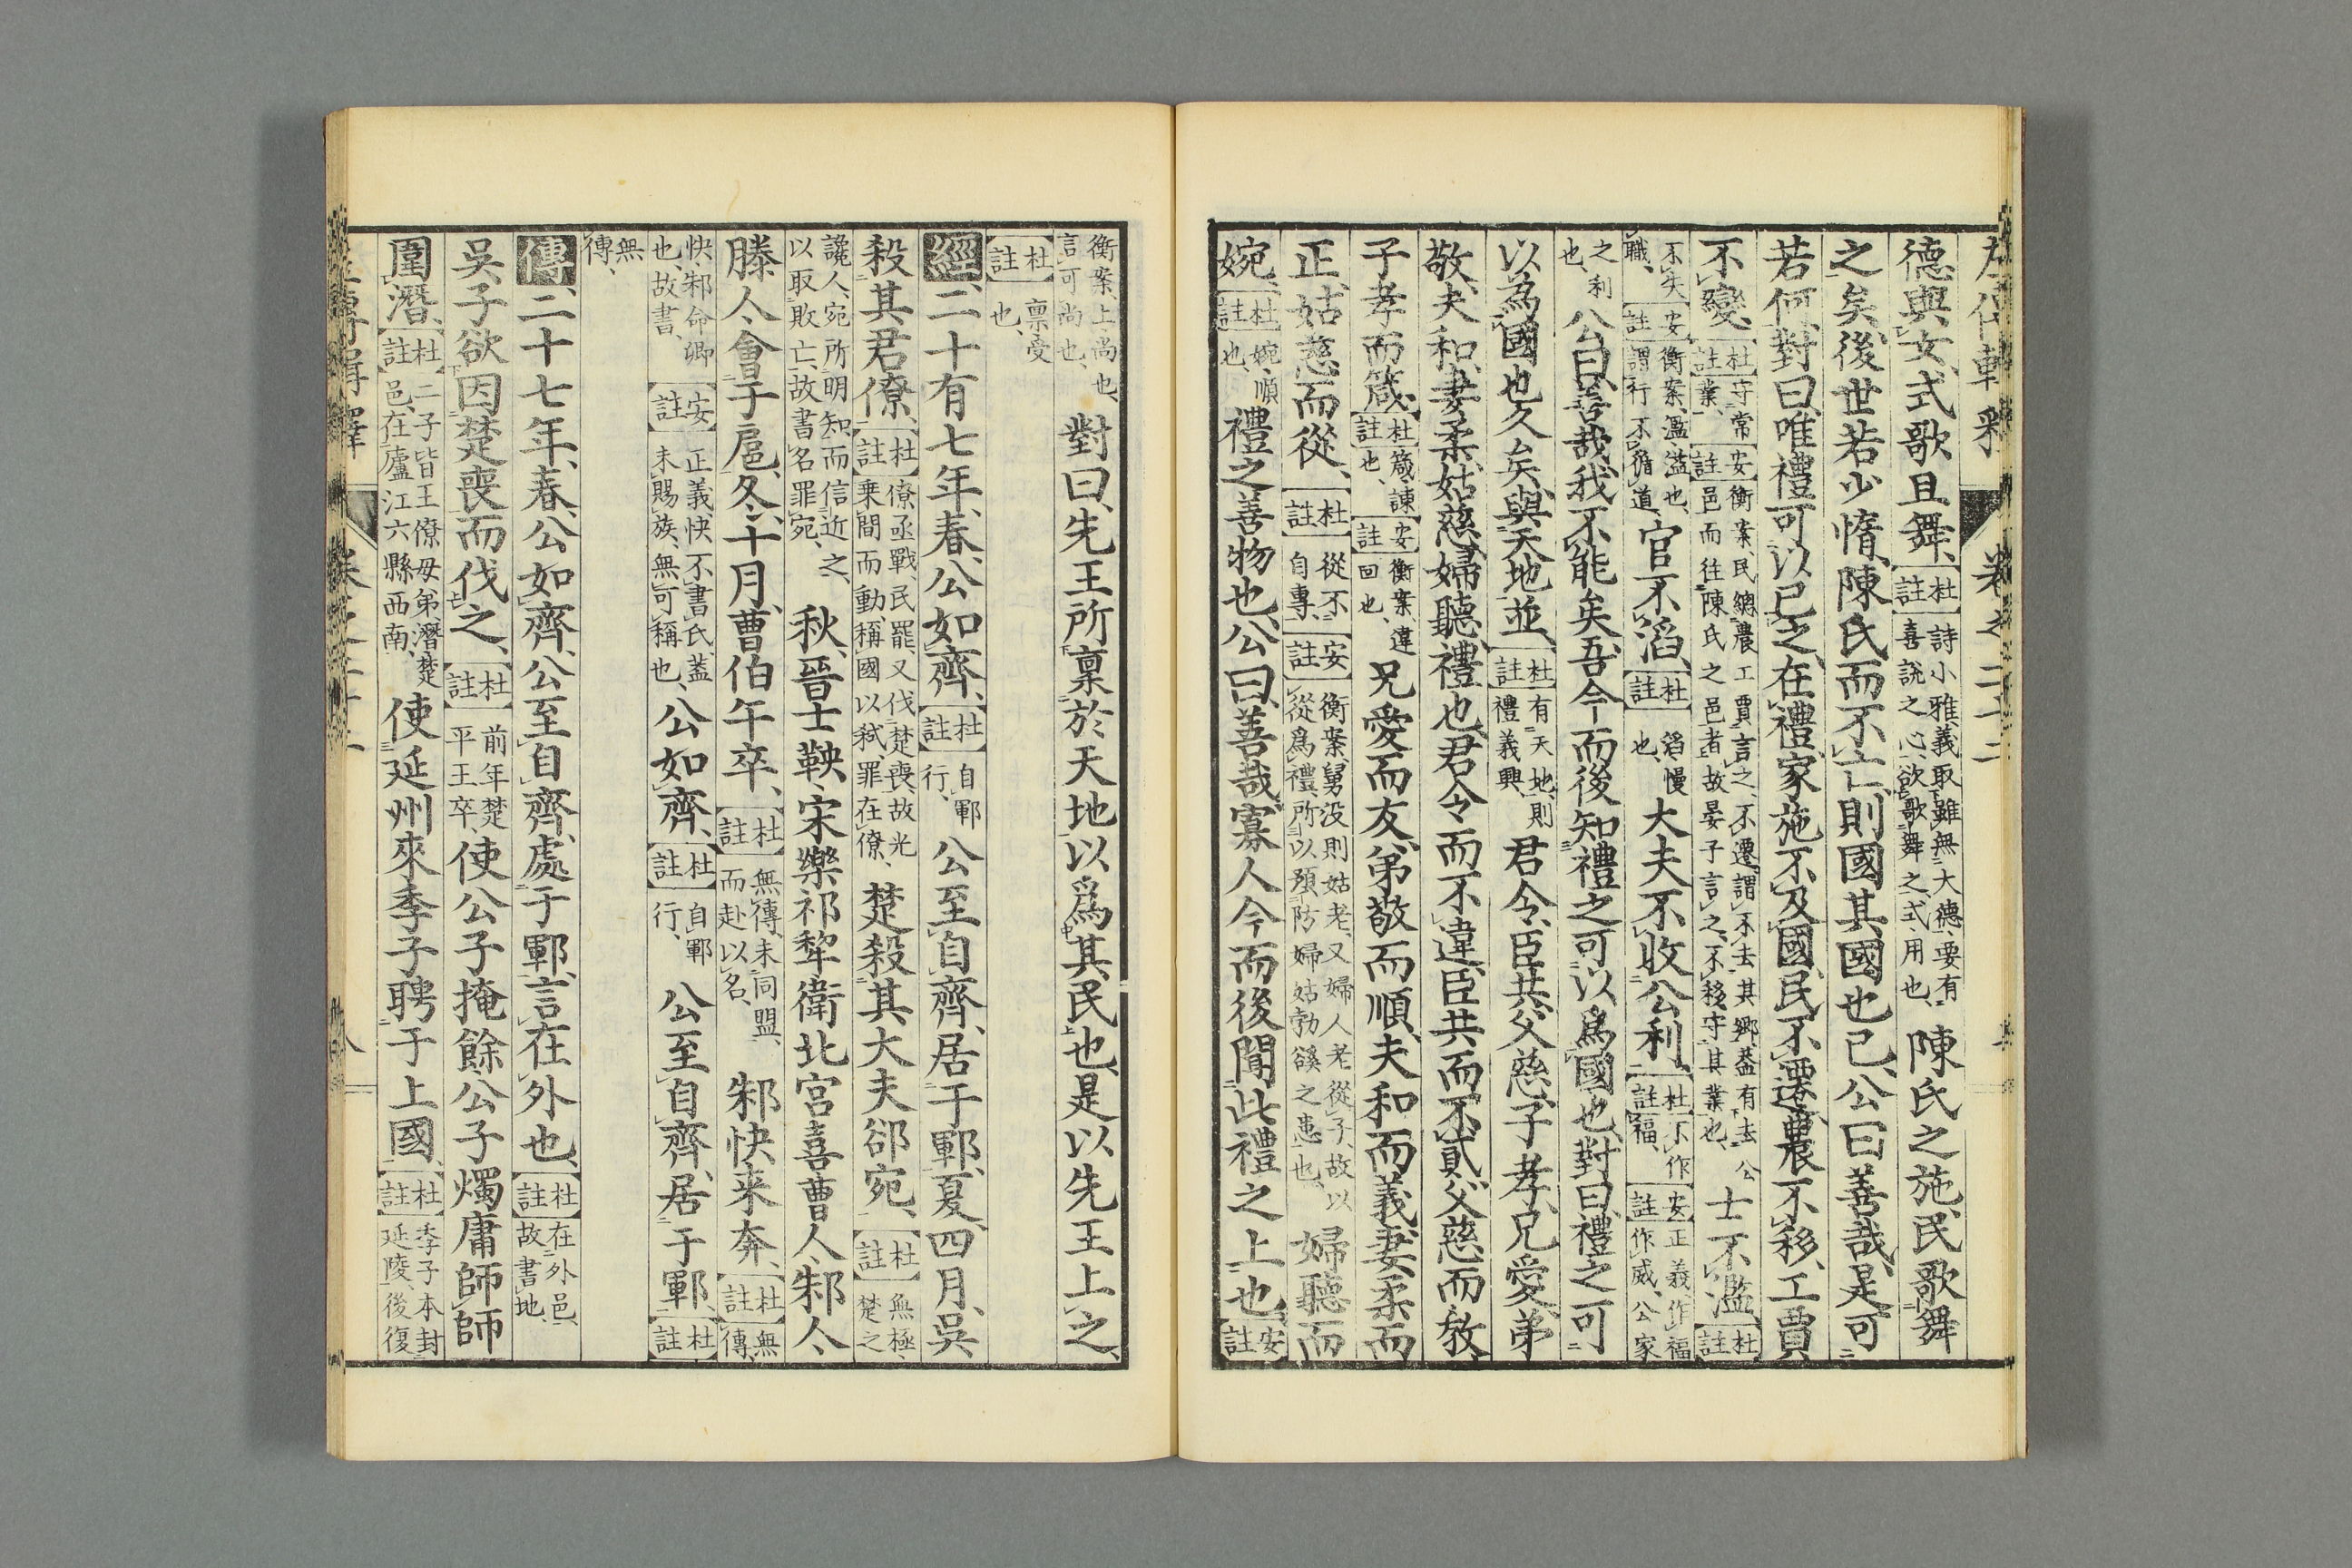 德與女式歌且舞、杜註詩小雅、義取雖無大德、要有喜說之心、欲歌舞之、式、用也、陳氏之施、民歌舞
之矣、後世若少惰、陳氏而不亡、則國其國也已、公曰善哉、是可
若何、對曰、唯禮可以已之、在禮、家施不及國、民不遷、農不移、工賈
不變、杜註守常業、安註衡案、民總農工賈言之、不遷、謂不去其鄉、蓋有去公邑而往陳氏之邑者、故晏子言之、不移、守其業也、士不濫、杜註
不失職、安註衡案、濫、溢也、謂行不循道、官不滔、杜註滔、慢也、大夫不收公利、杜註不作福、安註正義、作福作威、公家
之利也、公曰、善哉、我不能矣、吾今而後知禮之可以爲國也、對曰、禮之可
以爲國也久矣、與天地並、杜註有天地、則禮義興、君令、臣共、父慈、子孝、兄愛、弟
敬、夫和、妻柔、姑慈、婦聽、禮也、君令而不違、臣共而不貳、父慈而敎、
子孝而箴、杜註箴、諫也、安註衡案、違、回也、兄愛而友、弟敬而順、夫和而義、妻柔而
正、姑慈而從、杜註從、不自專、安註衡案、舅沒則姑老、又婦人老從子、故以從爲禮、所以預防婦姑勃谿之患也、婦聽而
婉、杜註婉、順也、禮之善物也、公曰、善哉、寡人今而後聞此禮之上也、安註
衡案、上、尚也、言可尚也、對曰、先王所稟於天地以爲其民也、是以先王上之、
杜註稟、受也、
經、二十有七年、春、公如齊、杜註自鄆行、公至自齊、居于鄆、夏、四月、吳
殺其君僚、杜註僚亟戰、民罷、又伐楚喪、故光乗間而動、稱國以弒、罪在僚、楚殺其大夫郤宛、杜註無極、楚之
讒人、宛所明知、而信近之、以取敗亡、故書名罪宛、秋、晉士鞅、宋樂祁犂、衛北宮喜、曹人、邾人、
滕人、會于扈、冬、十月、曹伯午卒、杜註無傳、未同盟、而赴以名、邾快来奔、杜註無傳、
快、邾命卿也、故書、安註正義、快不書氏、蓋未賜族、無可稱也、公如齊、杜註自鄆行、公至自齊、居于鄆、杜註
無傳、
傳、二十七年、春、公如齊、公至自齊、處于鄆、言在外也、杜註在外邑、故書地、
吳子欲因楚喪而伐之、杜註前年楚平王卒、使公子掩餘、公子燭庸師師
圍潛、杜註二子皆王僚母弟、潛、楚邑、在廬江六縣西南、使延州來季子聘于上國、杜註季子本封延陵、後復